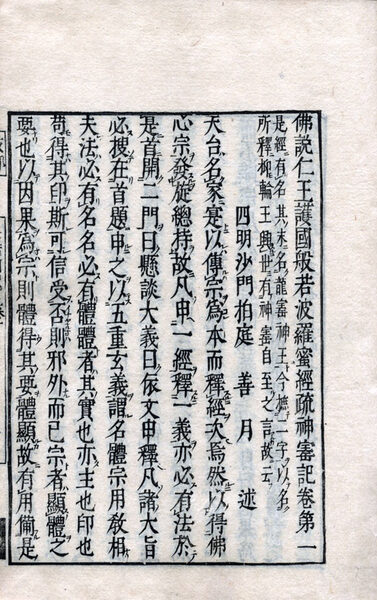 佛說仁王護國般若波羅蜜經疏神寶記卷第一
是經有名其末名龍寶神王今摭二字以名
所釋柳輪王典世有神寶自至之言故云
四明沙門柏庭　善月　述
天台名家寔以傳宗為本而釋經次焉然以得佛
心宗發旋總持故凡申一經釋一義亦必有法於
是首開二門曰懸談大義曰依文申釋凡諸大旨
必搜在首題申之以五重玄義謂名體宗用教相
夫法必有名名必有體體者其實也亦主也印也
苟得其印斯可信受否則邪外而已宗者顯體之
要也以因果為宗則體得其要體顯故有用備是